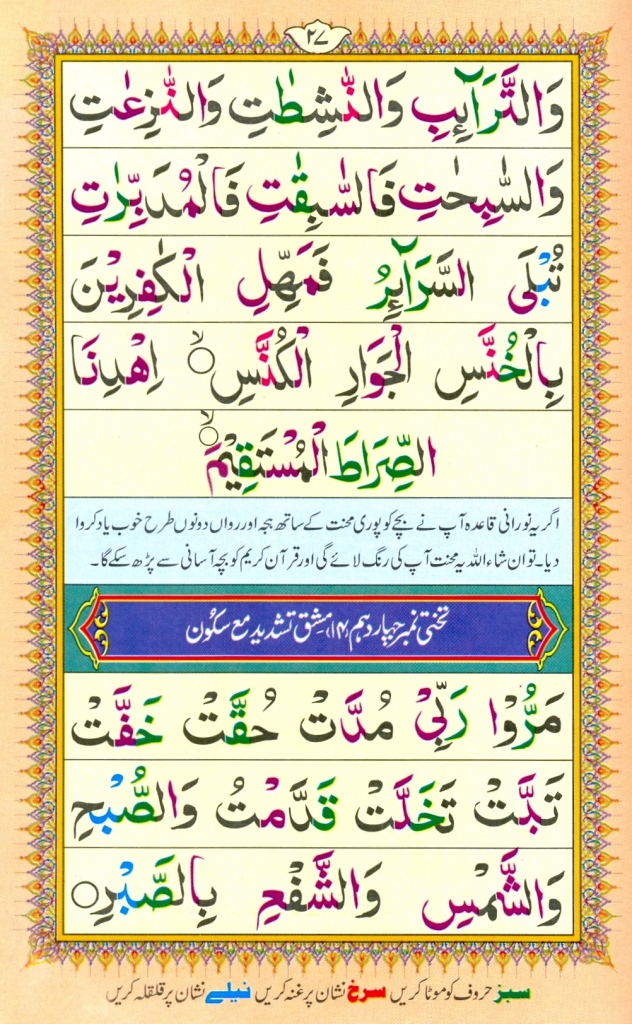 ۲۷
وَالتَّرَآئِبِ وَالنّٰشِطٰتِ وَالنّٰزِعٰتِ
وَالسّٰبِحٰتِ فَالسّٰبِقٰتِ فَالْمُدَبِّرٰتِ
تُبْلَى السَّرَآئِرُ فَمَهِّلِ الْكٰفِرِيْنَ
بِالْخُنَّسِ الْجَوَارِ الْكُنَّسِ ۙ اِهْدِنَا
الصِّرَاطَ الْمُسْتَقِيْمَ ۙ
اگر یہ نورانی قاعدہ آپ نے بچے کو پوری محنت کے ساتھ ہجہ اور رواں دونوں طرح خوب یاد کروا
دیا۔ تو ان شاء اللہ یہ محنت آپ کی رنگ لائے گی اور قرآن کریم کو بچہ آسانی سے پڑھ سکے گا۔
تختی نمبر چہاردہم (۱۴) مشق تشدید مع سکُون
مَرُّوْا رَبِّىْ مُدَّتْ حُقَّتْ خَفَّتْ
تَبَّتْ تَخَلَّتْ قَدَّمْتُ وَالصُّبْحِ
وَالشَّمْسِ وَالشَّفْعِ بِالصَّبْرِ ○
سبز حروف کو موٹا کریں سرخ نشان پر غنہ کریں نیلے نشان پر قلقلہ کریں